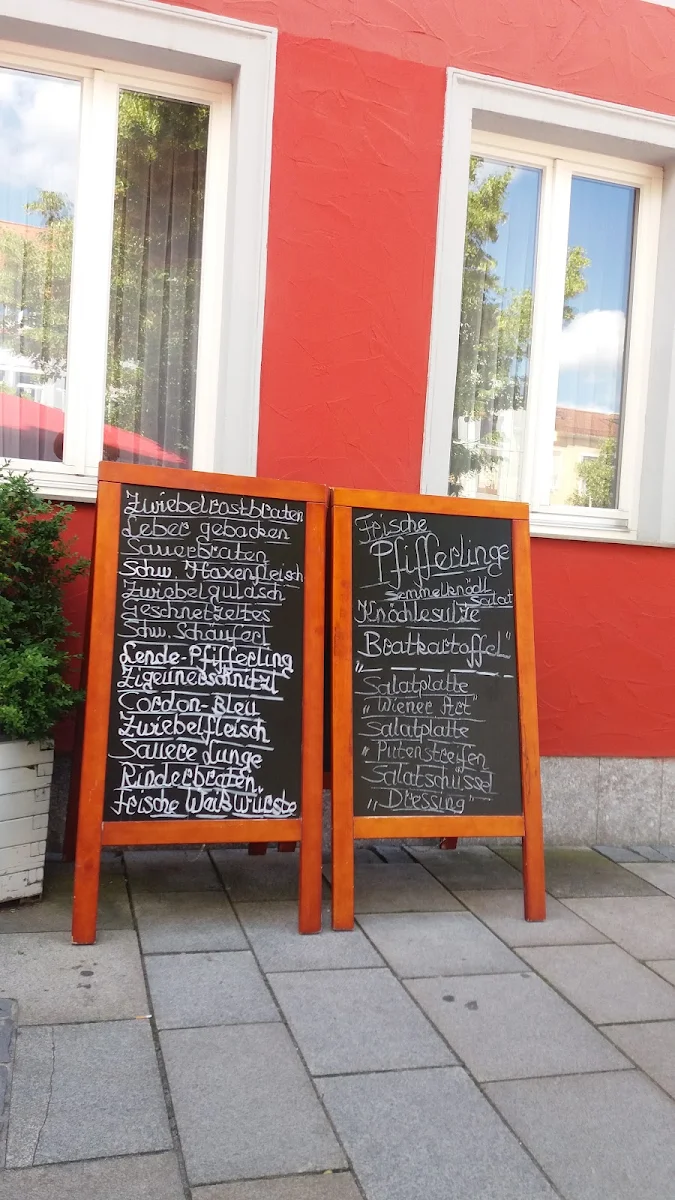 Zwiebelrostbraten
Leber gebacken
Sauerbraten
Schw. Haxenfleisch
Zwiebelgulasch
Geschnetzeltes
Schw. Schäuferl
Lende-Pfifferling
Zigeunerschnitzl
Cordon-Bleu
Zwiebelfleisch
Sauere Lunge
Rinderbraten
frische Weißwürste
Frische
Pfifferlinge
Semmelknödl
Salat
Knöchlesulze
"Bratkartoffel"
Salatplatte
"Wiener Art"
Salatplatte
"Putenstreifen
Salatschüssel
"Dressing"